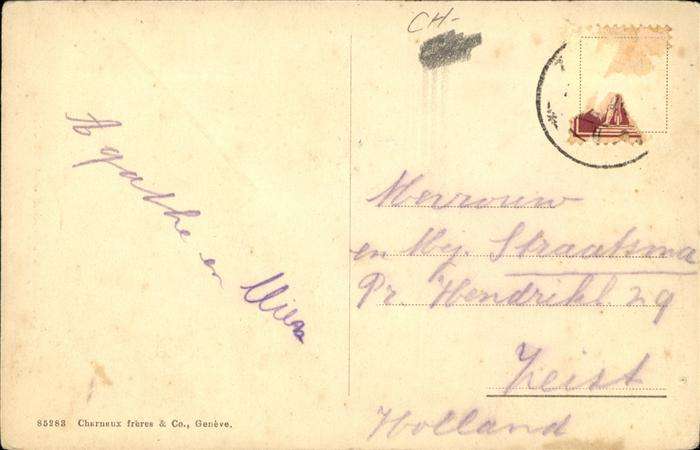 CH-
Agathe en Mien
Mevrouw
en Mej. Straatsma
Pr. Hendrikl 29
Zeist
Holland
85283 Charnaux frères & Co., Genève.